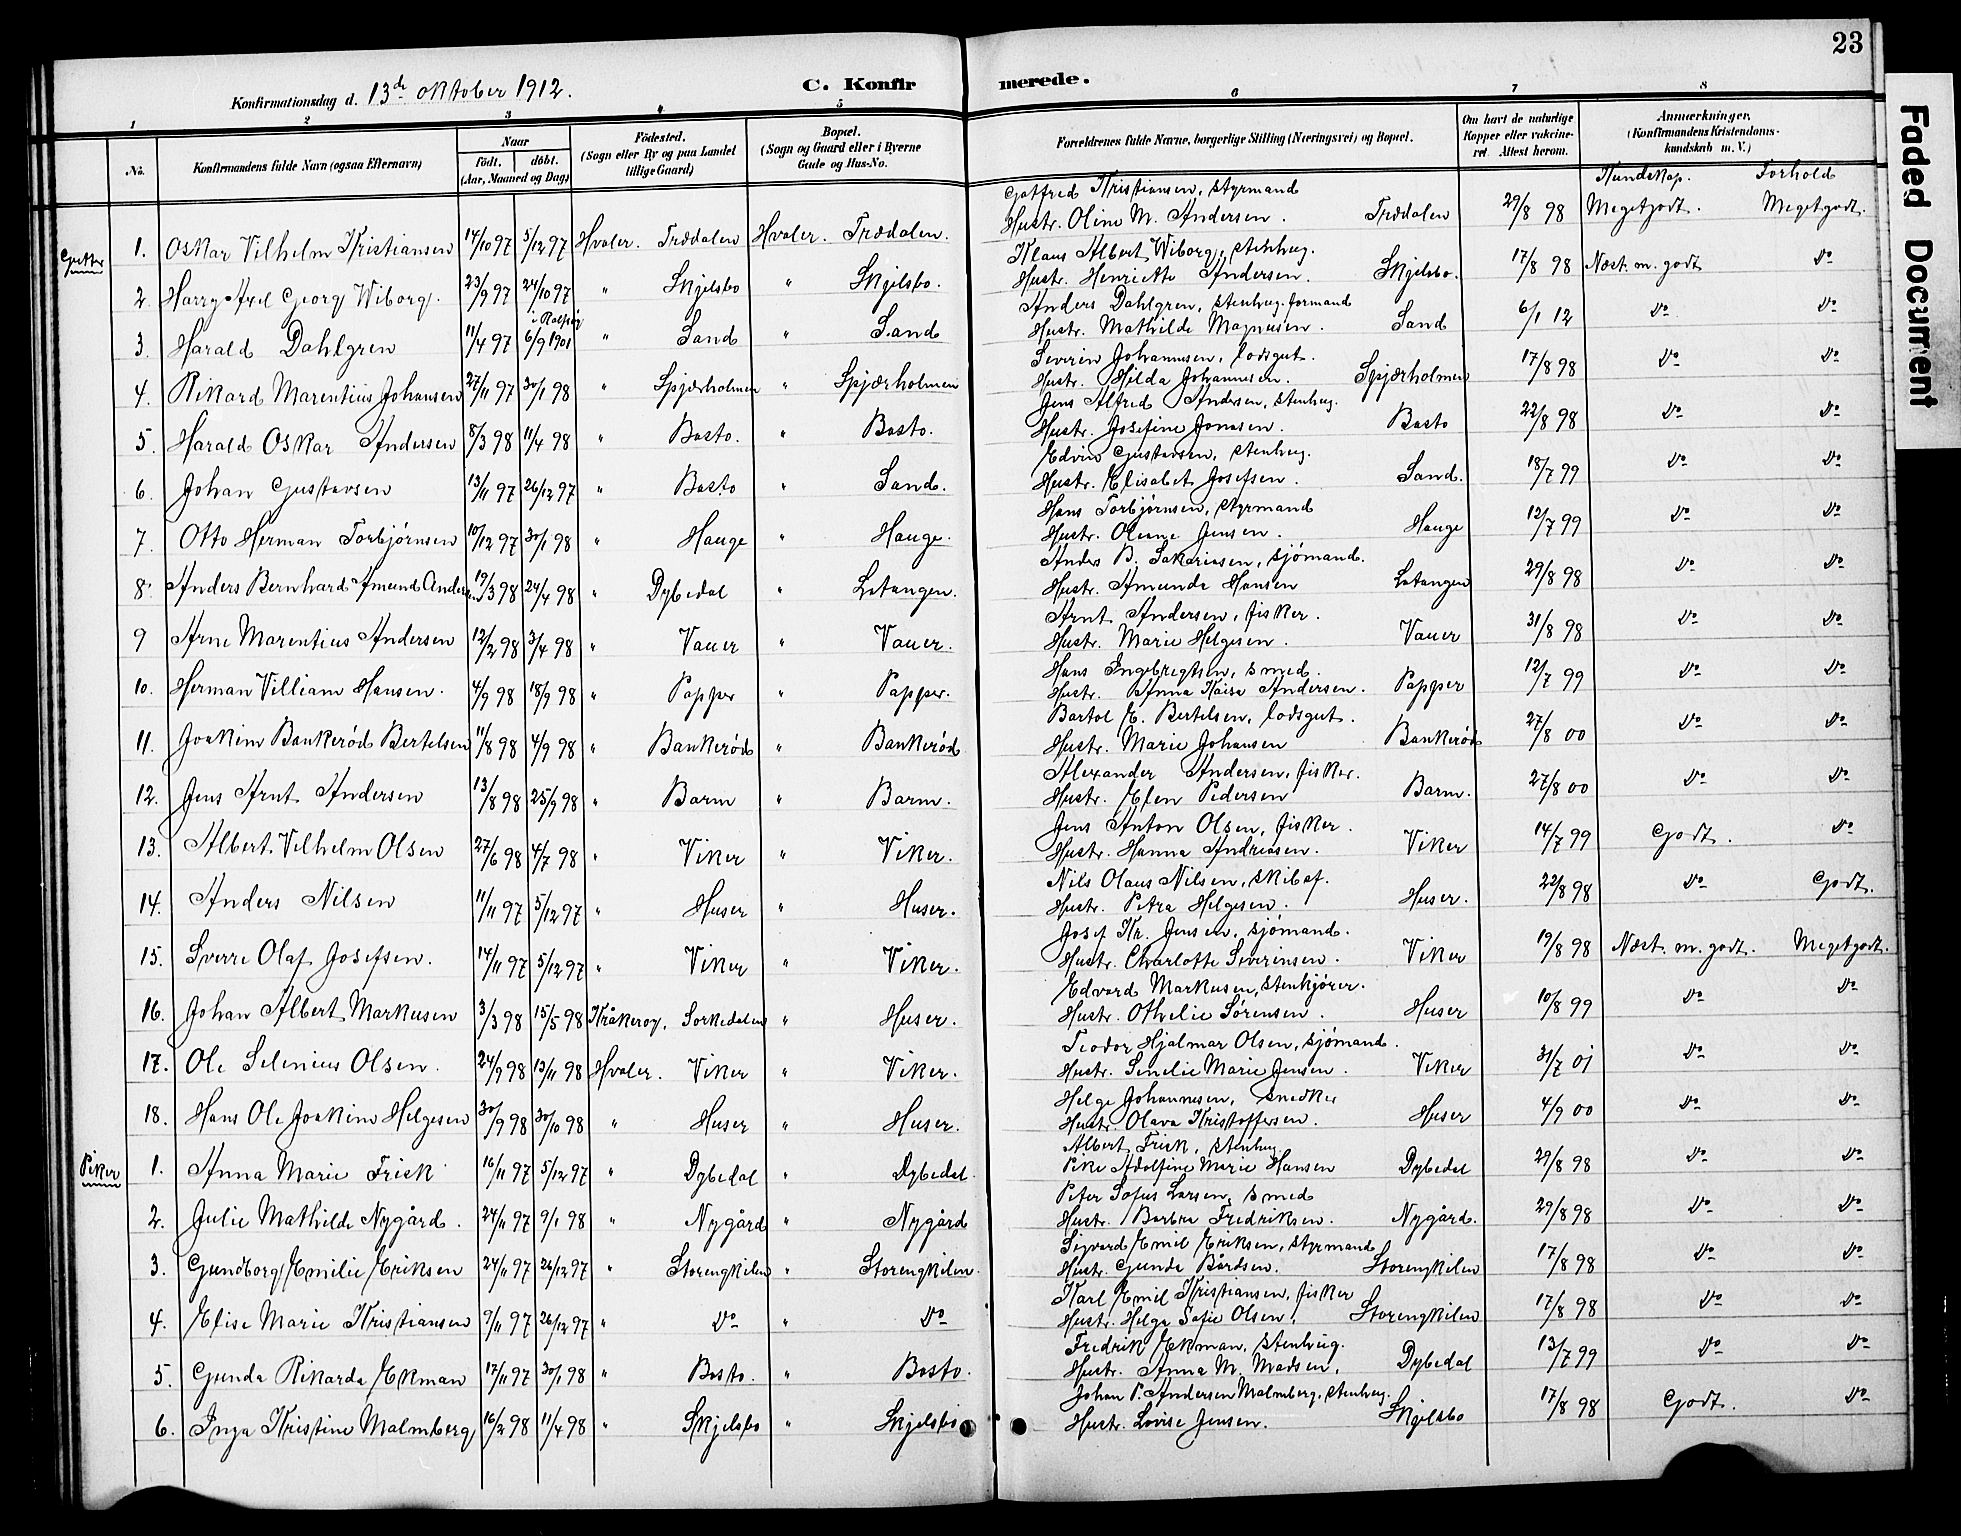 23
Faded Document
Konfirmationsdag d. 13de oktober 1912.
C. Konfirmerede.
1 2 3 4 5 6 7 8
No. Konfirmandens fulde Navn (ogsaa Efternavn) Naar født. døbt. (Aar, Maaned og Dag) Fødested. (Sogn eller By og paa Landet tillige Gaard) Bopæl. (Sogn og Gaard eller i Byerne Gade og Hus-No. Forældrenes fulde Navne, borgerlige Stilling (Næringsvei) og Bopæl. Om havt de naturlige Kopper eller vaccineret. Attest herom. Anmærkninger. (Konfirmandens Kristendomskundskab m. V.)
Kundskap. Forhold
Gutter
Gotfred Kristiansen, styrmand
1. Oskar Vilhelm Kristiansen 14/10 97 5/12 97 Hvaler. Trædalen Hvaler. Trædalen. Hustr. Oline M. Andersen. Trædalen 29/8 98 Megetgodt. Megetgodt.
Klaus Albert Wiborg, stenhug.
2. Harry Axel Georg Wiborg. 23/9 97 24/10 97 " Skjelsbo " Skjelsbo. Hustr. Henriette Andersen. Skjelsbo. 17/8 98 Næst. m. godt do
Anders Dahlgren, stenhug. formand
3. Harald Dahlgren 11/4 97 6/9 1901 " Sand " Sand Hustr. Mathilde Magnusen. Sand 6/1 12 do do
Severin Johannesen, lodsgut.
4. Rikard Marentius Johansen 27/11 97 30/1 98 " Spjærholmen " Spjærholmen Hustr. Hilda Johannesen. Spjærholmen 17/8 98 do do
Jens Alfred Andersen, stenhug.
5. Harald Oskar Andersen 8/3 98 11/4 98 " Basto. " Basto. Hustr. Josefine Jonasen. Basto 22/8 98 do do
Edvin Gustavsen, stenhug.
6. Johan Gustavsen 13/11 97 26/12 97 " Basto " Sand. Hustr. Elisabet Josefsen. Sand. 18/7 99 do do
Hans Torbjørnsen, styrmand
7. Otto Herman Torbjørnsen 10/12 97 30/1 98 " Hauge " Hauge. Hustr. Oleane Jensen. Hauge 12/7 99 do do
Anders B. Sakariasen, sjømand.
8. Anders Bernhard Amund Andersen 19/3 98 24/4 98 " Dybedal " Løtangen. Hustr. Amunda Hansen Løtangen 29/8 98 do do
Arnt Andersen, fisker.
9 Arne Marentius Andersen 12/2 98 3/4 98 " Vauer " Vauer. Hustr. Marie Helgesen. Vauer 31/8 98 do do
Hans Ingebregtsen, smed.
10. Herman Villiam Hansen. 4/9 98 18/9 98 " Papper " Papper. Hustr. Anna Kaisa Andersen. Papper 12/7 99 do do
Bartol E. Bertelsen, lodsgut.
11. Joakim Bankerød Bertelsen 11/8 98 4/9 98 " Bankerød " Bankerød Hustr. Marie Johansen Bankerød 27/8 00 do do
Alexander Andersen, fisker.
12. Jens Arnt Andersen 13/8 98 25/9 98 " Barm " Barm. Hustr. Elen Pedersen Barm. 27/8 00 do do
Jens Anton Olsen, fisker.
13. Albert Vilhelm Olsen 27/6 98 4/7 98 " Viker " Viker. Hustr. Hanna Andreasen. Viker 14/7 99 Godt. do
Nils Olaus Nilsen, skibsf.
14. Anders Nilsen 11/11 97 5/12 97 " Huser " Huser. Hustr. Petra Helgesen. Huser. 22/8 98 do Godt.
Josef Kr. Jensen, sjømand.
15. Sverre Olaf Josefsen. 14/11 97 5/12 97 " Viker " Viker. Hustr. Charlotte Severinsen. Viker 19/8 98 Næst. m. godt. Megetgodt.
Edvard Markusen, stenkjører.
16. Johan Albert Markusen 3/3 98 15/5 98 Kråkerøy, Sørkedalen " Huser. Hustr. Othelie Sørensen. Huser 10/8 99 do do
Teodor Hjalmar Olsen, sjømand.
17. Ole Selenius Olsen. 24/9 98 13/11 98 Hvaler. Viker " Viker. Hustr. Senelie Marie Jensen. Viker 31/7 01 do do
Helge Johannesen, snedker
18. Hans Ole Joakim Helgesen 30/9 98 30/10 98 " Huser " Huser. Hustr. Olava Kristoffersen. Huser 4/9 00 do do
Piker
Albert Frisk, stenhug.
1. Anna Marie Frisk 16/11 97 5/12 97 " Dybedal " Dybedal. Pike Adolfine Marie Hansen Dybedal 29/8 98 do do
Peter Sofus Larsen, smed
2. Julie Mathilde Nygård. 24/11 97 9/1 98 " Nygård " Nygård Hustr. Barbra Fredriksen. Nygård. 29/8 98 do do
Sigvard Emil Eriksen, styrmand
3. Gundborg Emilie Eriksen 24/11 97 26/12 97 " Storengkilen " Storengkilen. Hustr. Gunda Bårdsen. Storengkilen 17/8 98 do do
Karl Emil Kristiansen, fisker
4. Elise Marie Kristiansen 9/11 97 26/12 97 " do " do Hustr. Helga Sofie Olsen. Storengkilen 17/8 98 do do
Fredrik Ekman, stenhug.
5. Gunda Rikarda Ekman 17/11 97 30/1 98 " Basto. " Basto. Hustr. Anna M. Madsen. Dybedal 13/7 99 do do
Johan P. Andersen Malmberg, stenhug.
6. Inga Kristine Malmberg 16/2 98 11/4 98 " Skjelsbo " Skjelsbo Hustr. Lovise Jensen. Skjelsbo 17/8 98 Godt. do